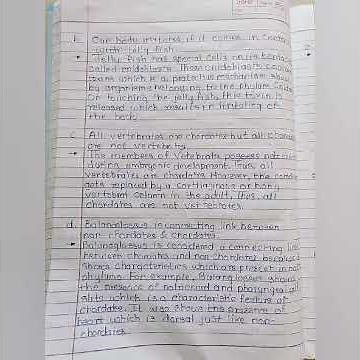 b. Our body irritates if it comes in contact
with jelly fish.
→ Jelly fish has special cells on its tentacles
called cnidoblasts. These cnidoblasts contain
toxin which is a protective mechanism shown
by organisms belonging to the phylum
On touching the jelly fish, this toxin is
released which results in irritation of
the body.
c. All vertebrates are chordates but all chordates
are not vertebrates.
→ The members of Vertebrata possess
during embryonic development. Thus, all
vertebrates are chordates. However, the
gets replaced by a cartilaginous or bony
vertebral column in the adult, thus, all
chordates are not vertebrates.
d. Balanoglossus is connecting link between
non-chordates & chordates.
→ Balanoglossus is considered a connecting link
between chordates and non-chordates because
shows characteristics which are present in
phylums. For example, Balanoglossus shows
the presence of notochord and pharyngeal gill
slits which is a characteristic feature of
chordates. It also shows the presence of
heart which is dorsal just like non-
chordates.